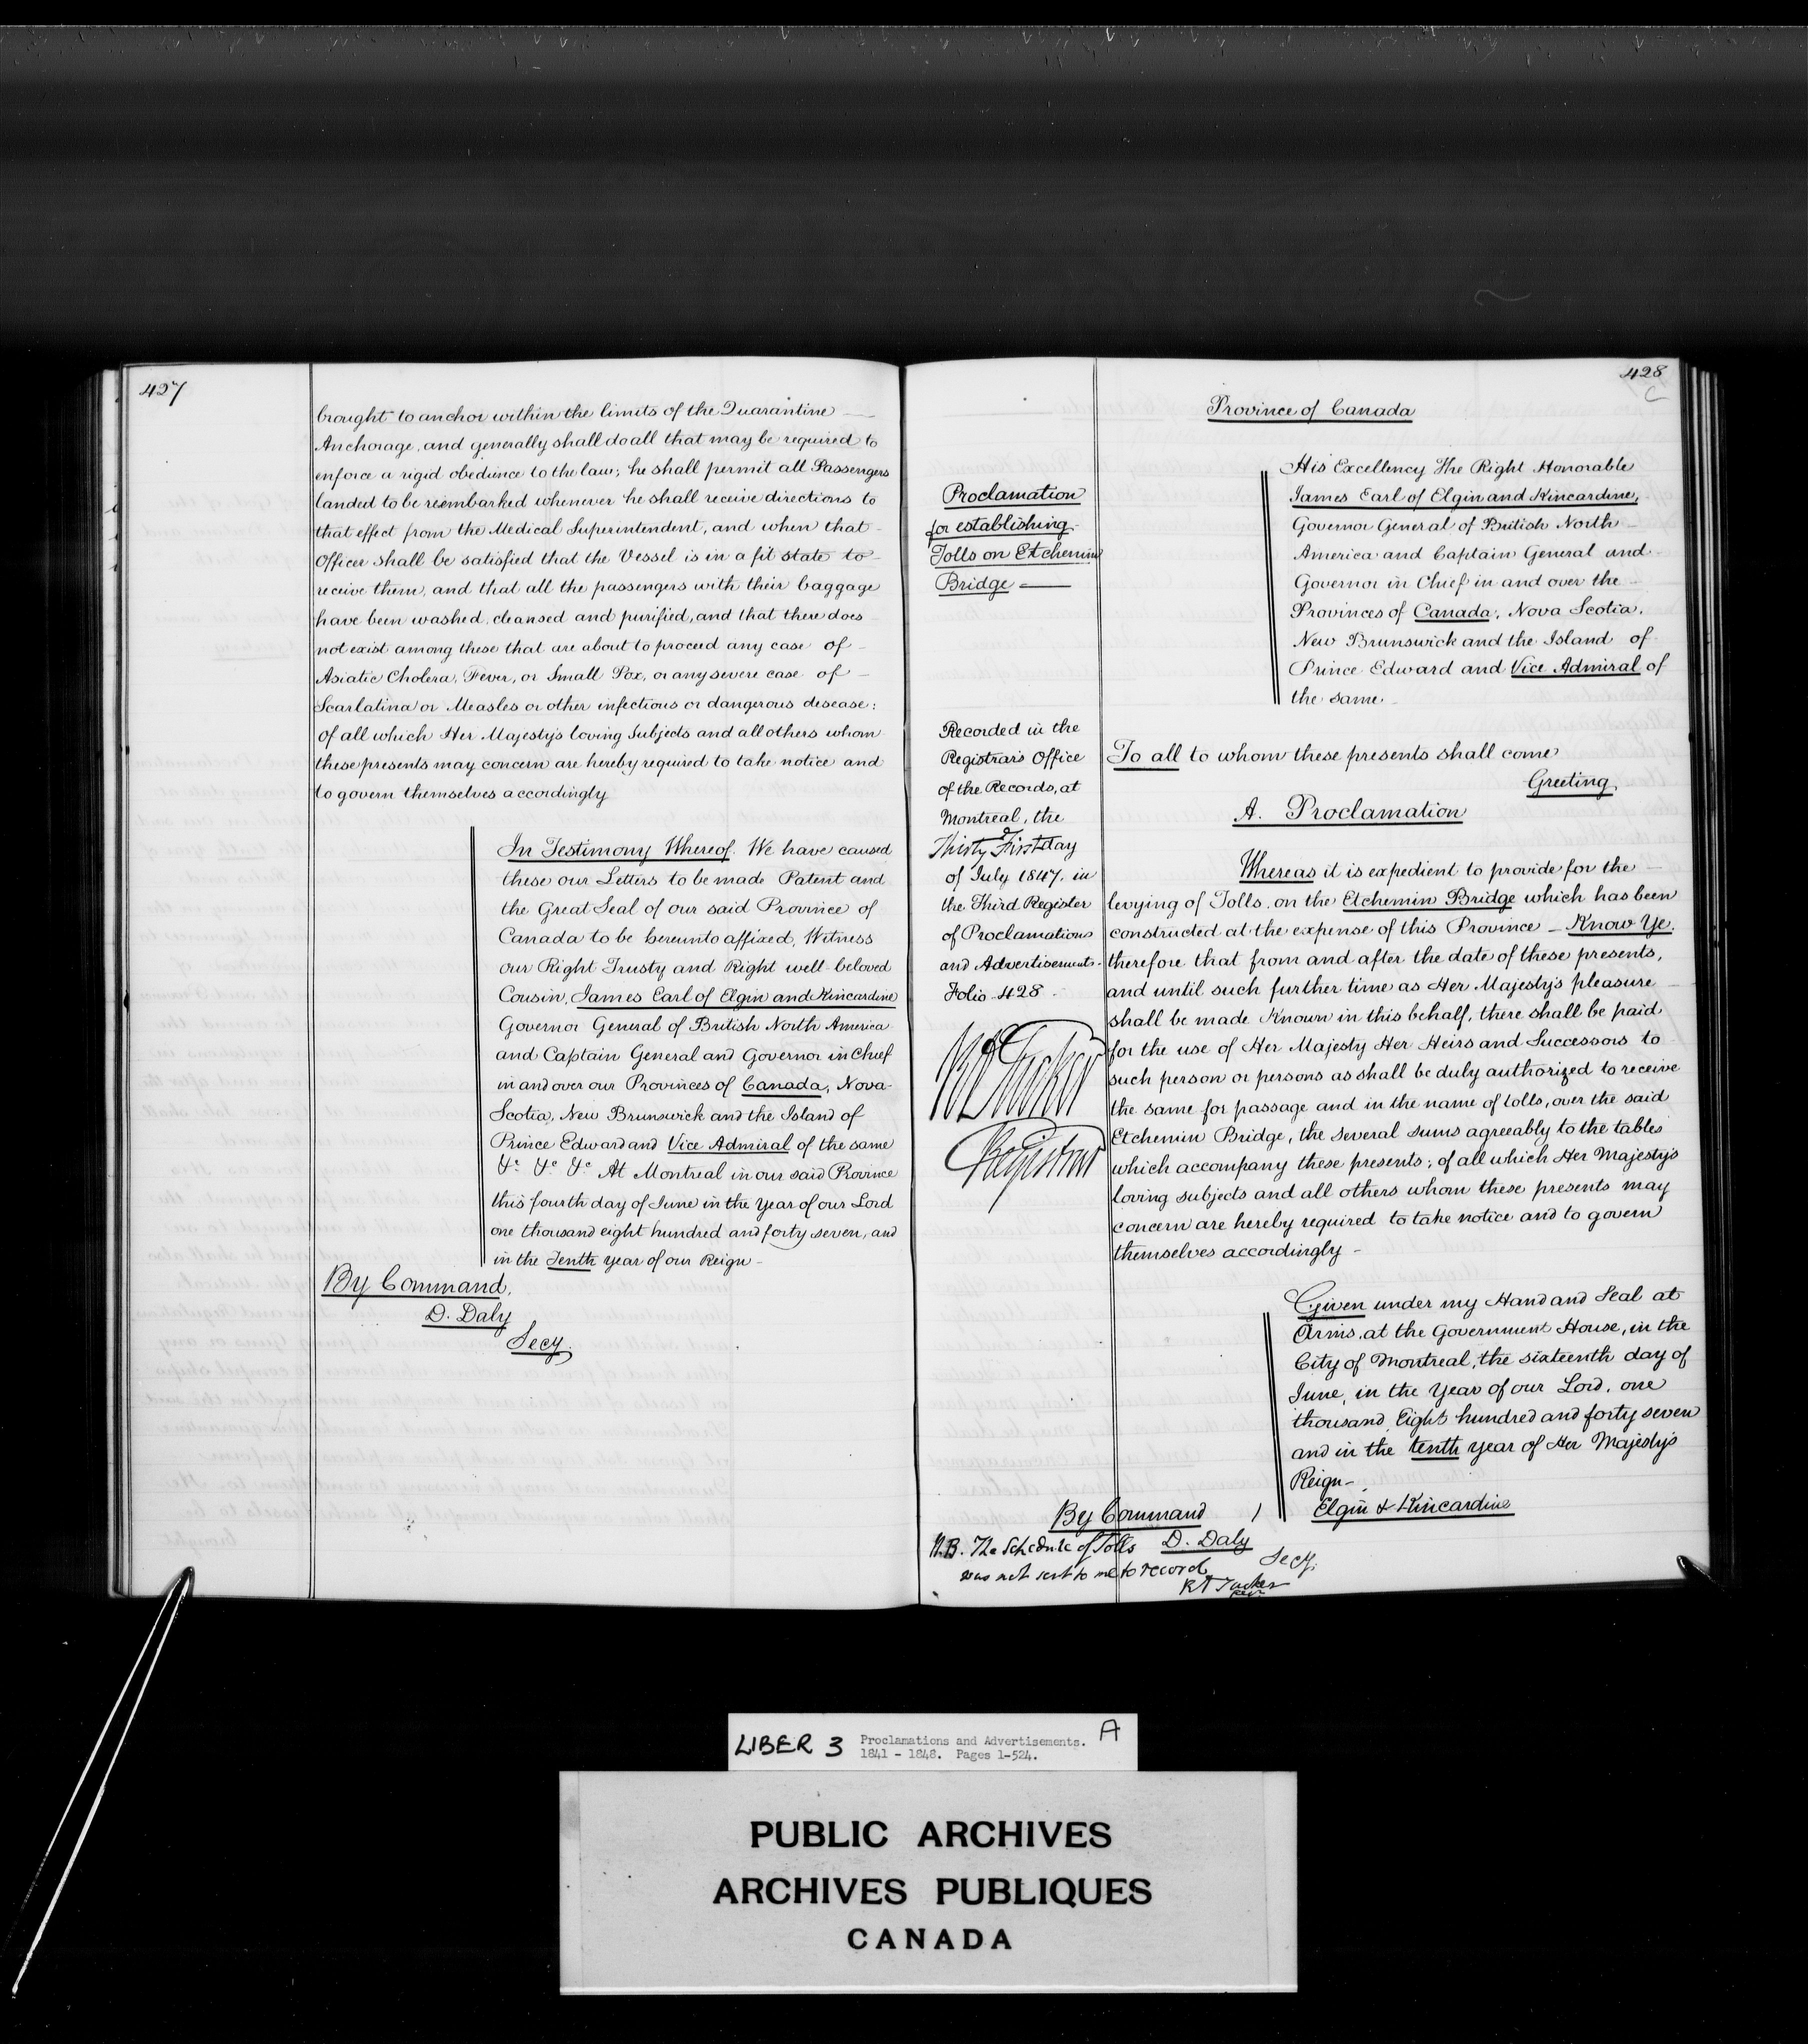 427
brought to anchor within the limits of the Quarantine
Anchorage, and generally shall do all that may be required to
enforce a rigid obedience to the law; he shall permit all Passengers
landed to be reembarked whenever he shall receive directions to
that effect from the Medical Superintendent, and when that
Officer shall be satisfied that the Vessel is in a fit state to
receive them, and that all the passengers with their baggage
have been washed, cleansed and purified, and that there does
not exist among these that are about to proceed any case of
Asiatic Cholera, Fever, or Small Pox, or any severe case of
Scarlatina or Measles or other infectious or dangerous desease:
of all which Her Majesty's loving Subjects and all others whom
these presents may concern are hereby required to take notice and
to govern themselves accordingly
In Testimony Whereof. We have caused
these our Letters to be made Patent and
the Great Seal of our said Province of
Canada to be hereunto affixed, Witness
our Right Trusty and Right well-beloved
Cousin, James Earl of Elgin and Kincardine
Governor General of British North America
and Captain General and Governor in Chief
in and over our Provinces of Canada, Nova-
Scotia, New Brunswick and the Island of
Prince Edward and Vice Admiral of the same
&c &c &c At Montreal in our said Province
this fourth day of June in the Year of our Lord
one thousand eight hundred and forty seven, and
in the Tenth year of our Reign -
By Command,
D. Daly
Secy.
428
C
Province of Canada
Proclamation
for establishing
Tolls on Etchemin
Bridge
His Excellency The Right Honorable
James Earl of Elgin and Kincardine,
Governor General of British North
America and Captain General and
Governor in Chief in and over the
Provinces of Canada, Nova Scotia,
New Brunswick and the Island of
Prince Edward and Vice Admiral of
the same.
Recorded in the
Registrar's Office
of the Records, at
Montreal, the
Thirty First day
of July 1847, in
the Third Register
of Proclamations
and Advertisements.
Folio 428.
R A Tucker
Registrar
To all to whom these presents shall come
Greeting
A. Proclamation
Whereas it is expedient to provide for the
levying of Tolls on the Etchemin Bridge which has been
constructed at the expense of this Province _ Know Ye.
therefore that from and after the date of these presents,
and until such further time as Her Majesty's pleasure
shall be made Known in this behalf, there shall be paid
for the use of Her Majesty Her Heirs and Successors to
such person or persons as shall be duly authorized to receive
the same for passage and in the name of tolls, over the said
Etchemin Bridge, the several sums agreeably to the tables
which accompany these presents; of all which Her Majesty's
loving subjects and all others whom these presents may
concern are hereby required to take notice and to govern
themselves accordingly -
Given under my Hand and Seal at
Arms, at the Government House, in the
City of Montreal, the sixteenth day of
June, in the Year of our Lord, one
thousand Eight hundred and forty seven
and in the tenth year of Her Majesty's
Reign -
Elgin & Kincardine
By Command
D. Daly
Secy.
N.B. The Schedule of Tolls
was not sent to me to record
R A Tucker
Regr
LIBER 3 Proclamations and Advertisements. A
1841 - 1848. Pages 1-524.
PUBLIC ARCHIVES
ARCHIVES PUBLIQUES
CANADA